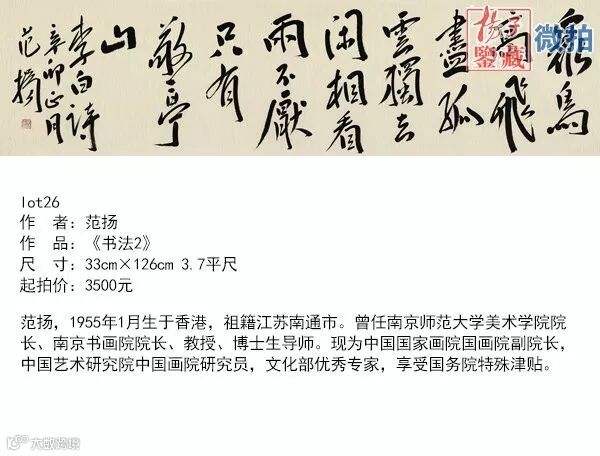 衆鳥
高飛
盡孤
雲獨去
閑相看
兩不厭
只有
敬亭
山
李白詩
辛卯正月
范揚
鑒藏
微拍
lot26
作　者：范扬
作　品：《书法2》
尺　寸：33cm×126cm 3.7平尺
起拍价：3500元
范扬，1955年1月生于香港，祖籍江苏南通市。曾任南京师范大学美术学院院
长、南京书画院院长、教授、博士生导师。现为中国国家画院国画院副院长，
中国艺术研究院中国画院研究员，文化部优秀专家，享受国务院特殊津贴。
大数跨境